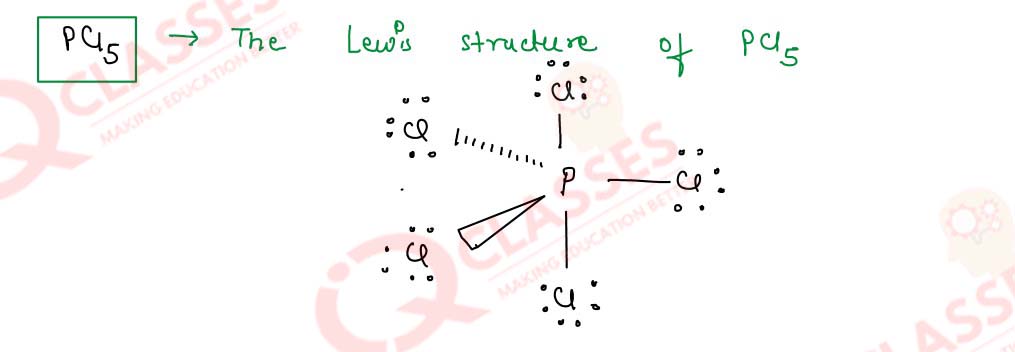 PCl5 → The Lewis structure of PCl5
Cl
Cl
P
Cl
Cl
Cl
IQ CLASSES
MAKING EDUCATION BETTER
IQ CLASSES
MAKING EDUCATION BETTER
CLASSES